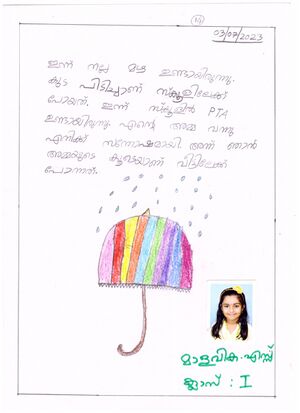 14
03/07/2023
ഇന്ന് നല്ല മഴ ഉണ്ടായിരുന്നു.
കുട പിടിച്ചാണ് സ്കൂളിലേക്ക്
പോയത്. ഇന്ന് സ്കൂളിൽ PTA
ഉണ്ടായിരുന്നു. എന്റെ അമ്മ വന്നു
എനിക്ക് സന്തോഷമായി അന്ന് ഞാൻ
അമ്മയുടെ കൂടെയാണ് വീട്ടിലേക്ക്
പോന്നത്.
മാളവിക. എസ്സ്
ക്ലാസ് : I